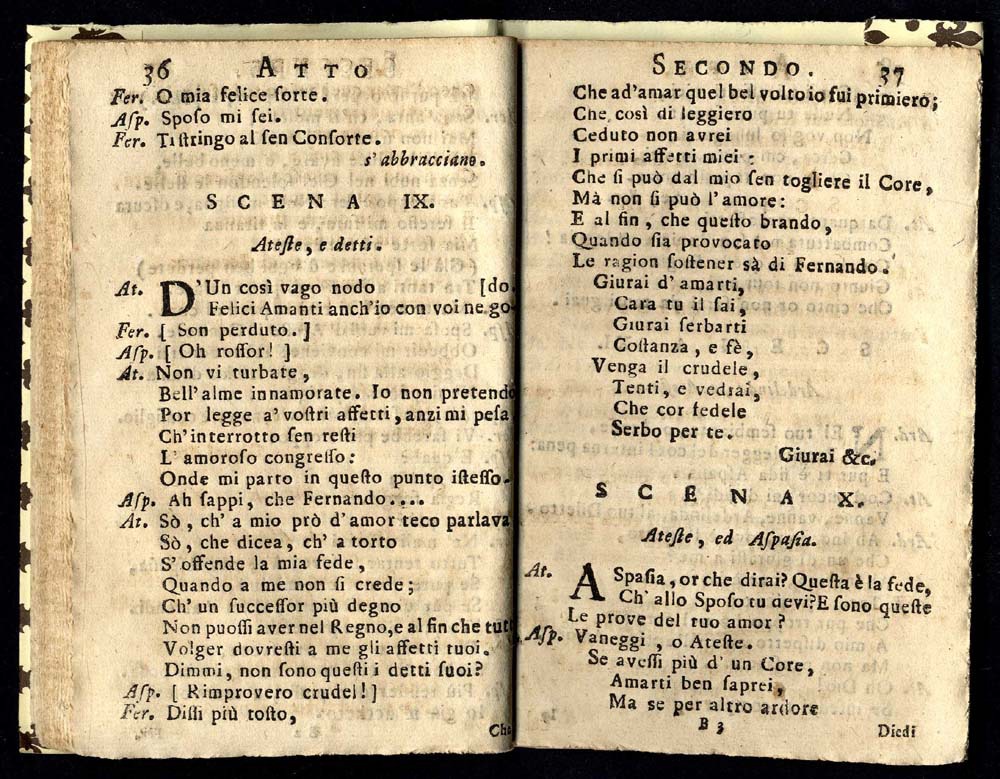 36 ATTO
Fer. O mia felice ſorte.
Aſp. Spoſo mi ſei.
Fer. Ti ſtringo al ſen Conſorte.
s'abbracciano.
SCENA IX.
Ateſte, e detti.
At. D'Un così vago nodo [do.
Felici Amanti anch'io con voi ne go-
Fer. [ Son perduto. ]
Aſp. [ Oh roſſor! ]
At. Non vi turbate,
Bell'alme innamorate. Io non pretendo
Por legge a' voſtri affetti, anzi mi peſa
Ch'interrotto ſen reſti
L'amoroſo congreſſo:
Onde mi parto in queſto punto iſteſſo.
Aſp. Ah ſappi, che Fernando....
At. Sò, ch'a mio prò d'amor teco parlava
Sò, che dicea, ch'a torto
S'offende la mia fede,
Quando a me non ſi crede;
Ch'un ſucceſſor più degno
Non puoſſi aver nel Regno, e al fin che tut
Volger dovreſti a me gli affetti tuoi.
Dimmi, non ſono queſti i detti ſuoi?
Aſp. [ Rimprovero crudel! ]
Fer. Diſſi più toſto,
Che
SECONDO. 37
Che ad'amar quel bel volto io fui primiero;
Che così di leggiero
Ceduto non avrei
I primi affetti miei:
Che ſi può dal mio ſen togliere il Core,
Mà non ſi può l'amore:
E al fin, che queſto brando,
Quando ſia provocato
Le ragion ſoſtener sà di Fernando.
Giurai d'amarti,
Cara tu il ſai,
Giurai ſerbarti
Coſtanza, e fè,
Venga il crudele,
Tenti, e vedrai,
Che cor fedele
Serbo per te.
Giurai &c.
SCENA X.
Ateſte, ed Aſpaſia.
At. ASpaſia, or che dirai? Queſta è la fede,
Ch'allo Spoſo tu devi? E ſono queſte
Le prove del tuo amor?
Aſp. Vaneggi, o Ateſte.
Se aveſſi più d'un Core,
Amarti ben ſaprei,
Ma se per altro ardore
B 3
Diedi